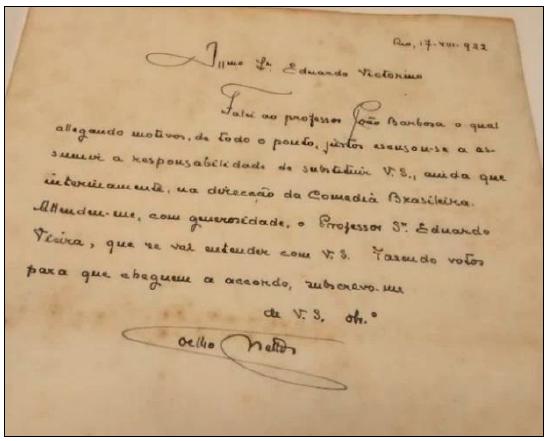 Rio, 17-VIII-922
Illmo Sr. Eduardo Victorino
Falei ao professor João Barbosa o qual
allegando motivos, de todo o ponto, justos escusou-se a as-
sumir a responsabilidade de substituir V.S., ainda que
interinamente, na direcção da Comedia Brasileira.
Attendeu-me, com generosidade, o Professor Sr. Eduardo
Vieira, que se vai entender com V.S. Fazendo votos
para que cheguem a accordo, subscrevo-me
de V.S. obr.º
Coelho Netto